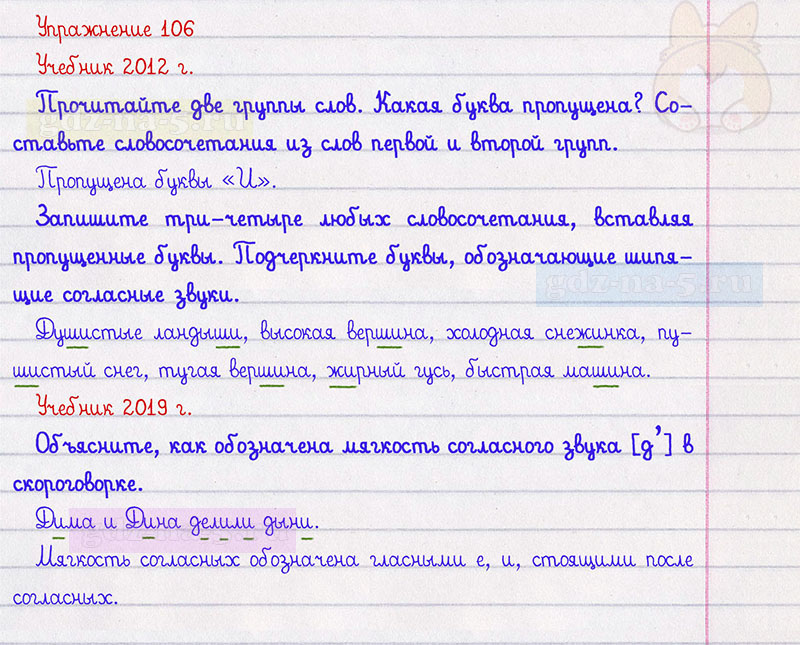 Упражнение 106
Учебник 2012 г.
Прочитайте две группы слов. Какая буква пропущена? Со-
ставьте словосочетания из слов первой и второй групп.
Пропущена буквы «И».
Запишите три-четыре любых словосочетания, вставляя
пропущенные буквы. Подчеркните буквы, обозначающие шипя-
щие согласные звуки.
Душистые ландыши, высокая вершина, холодная снежинка, пу-
шистый снег, тугая вершина, жирный гусь, быстрая машина.
Учебник 2019 г.
Объясните, как обозначена мягкость согласного звука [д’] в
скороговорке.
Дима и Дина делили дыни.
Мягкость согласных обозначена гласными е, и, стоящими после
согласных.
gdz-na-5.ru
gdz-na-5.ru
gdz-na-5.ru